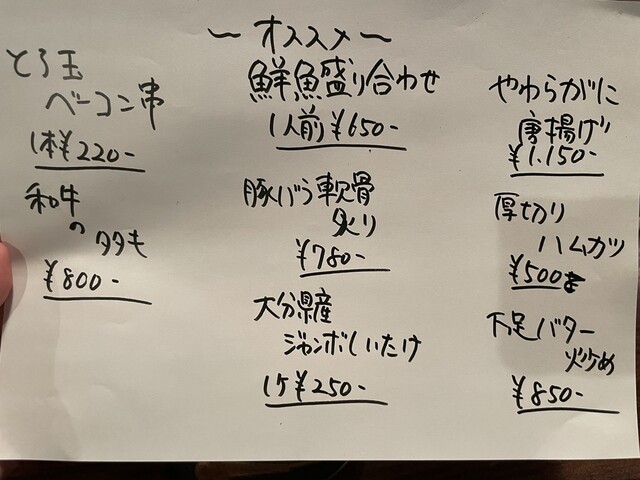 〜オススメ〜
鮮魚盛り合わせ
1人前¥650-
豚バラ軟骨
炙り
¥780-
大分県産
ジャンボしいたけ
1ケ¥250-
とろ玉
ベーコン串
1本¥220-
和牛
の
タタキ
¥800-
やわらがに
唐揚げ
¥1.150-
厚切り
ハムカツ
¥500
下足バター
炒め
¥850-